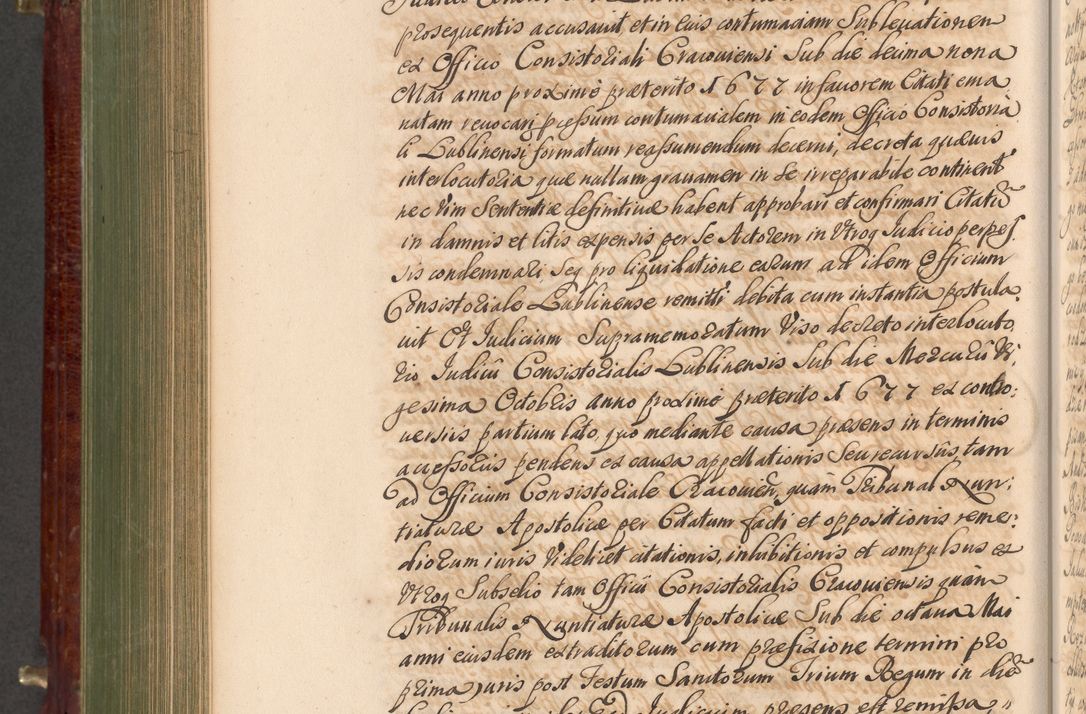 prosequentis accusavit, et in eius contumaciam Sublevationem
ex Officio Consistoriali Cracoviensi Sub die decima nona
Mai anno proximè præterito 1677 in favorem Citati ema
natam revocari, processum contumacialem in eodem Officio Consistoria
li Lublinensi formatum reassumendum decerni, decreta quævis
interlocutoria quæ nullam gravamen in se irreparabile continent
nec vim Sententiæ definitivæ habent approbari et confirmari Citatū
in damnis et litis expensis per se Actorem in Utroq Judicio perpes
sis condemnari Seq pro liquidatione earum ad idem Officium
Consistoriale Lublinense remitti debita cum instantia postula
vit Et Judicium Supramemoratum Viso decreto interlocuto
rio Judicii Consistorialis Lublinensis Sub die Mercurii Vi
gesima Octobris anno proximè præterito 1677 ex contro:
versiis partium lato, quo mediante causa præsens in terminis
accessoriis pendens ex causa appellationis Seu recursûs, tam
ad Officium Consistoriale Racovien, quàm Tribunal Nun:
tiaturæ Apostolicæ per Citatum facti et oppositionis reme:
diorum iuris Videlicet citationis, inhibitionis et compulsus ex
Utroq Subselio tam Officii Consistorialis Cracoviensis quàm
Tribunalis Nuntiaturæ Apostolicæ Sub die octava Mai
anni eiusdem extraditorum cum præfixione termini pro
prima juris post Festum Sanctorum Trium Regum in diē
Judicium præsens est remissa